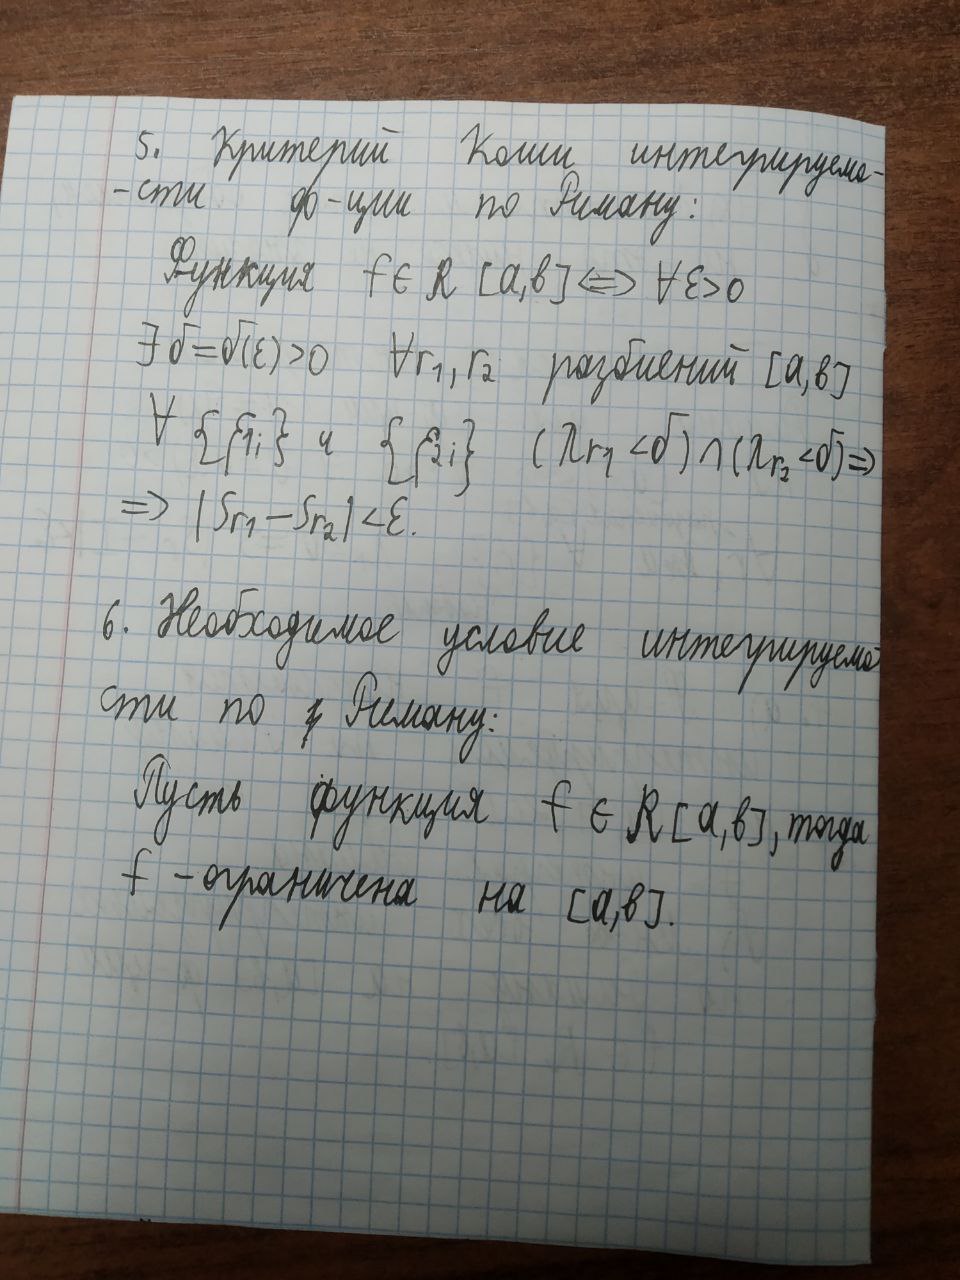 5. Критерий Коши интегрируемо-
-сти ф-ции по Риману:
Функция f∈R [a,b] ⟺ ∀ε>0
∃δ=δ(ε)>0 ∀r₁,r₂ разбиений [a,b]
∀ {ξ₁ᵢ} и {ξ₂ᵢ} (λr₁<δ)∩(λr₂<δ)⇒
⇒ |Sr₁-Sr₂|<ε.
6. Необходимое условие интегрируемо-
сти по Риману:
Пусть функция f∈R[a,b], тогда
f -ограничена на [a,b].